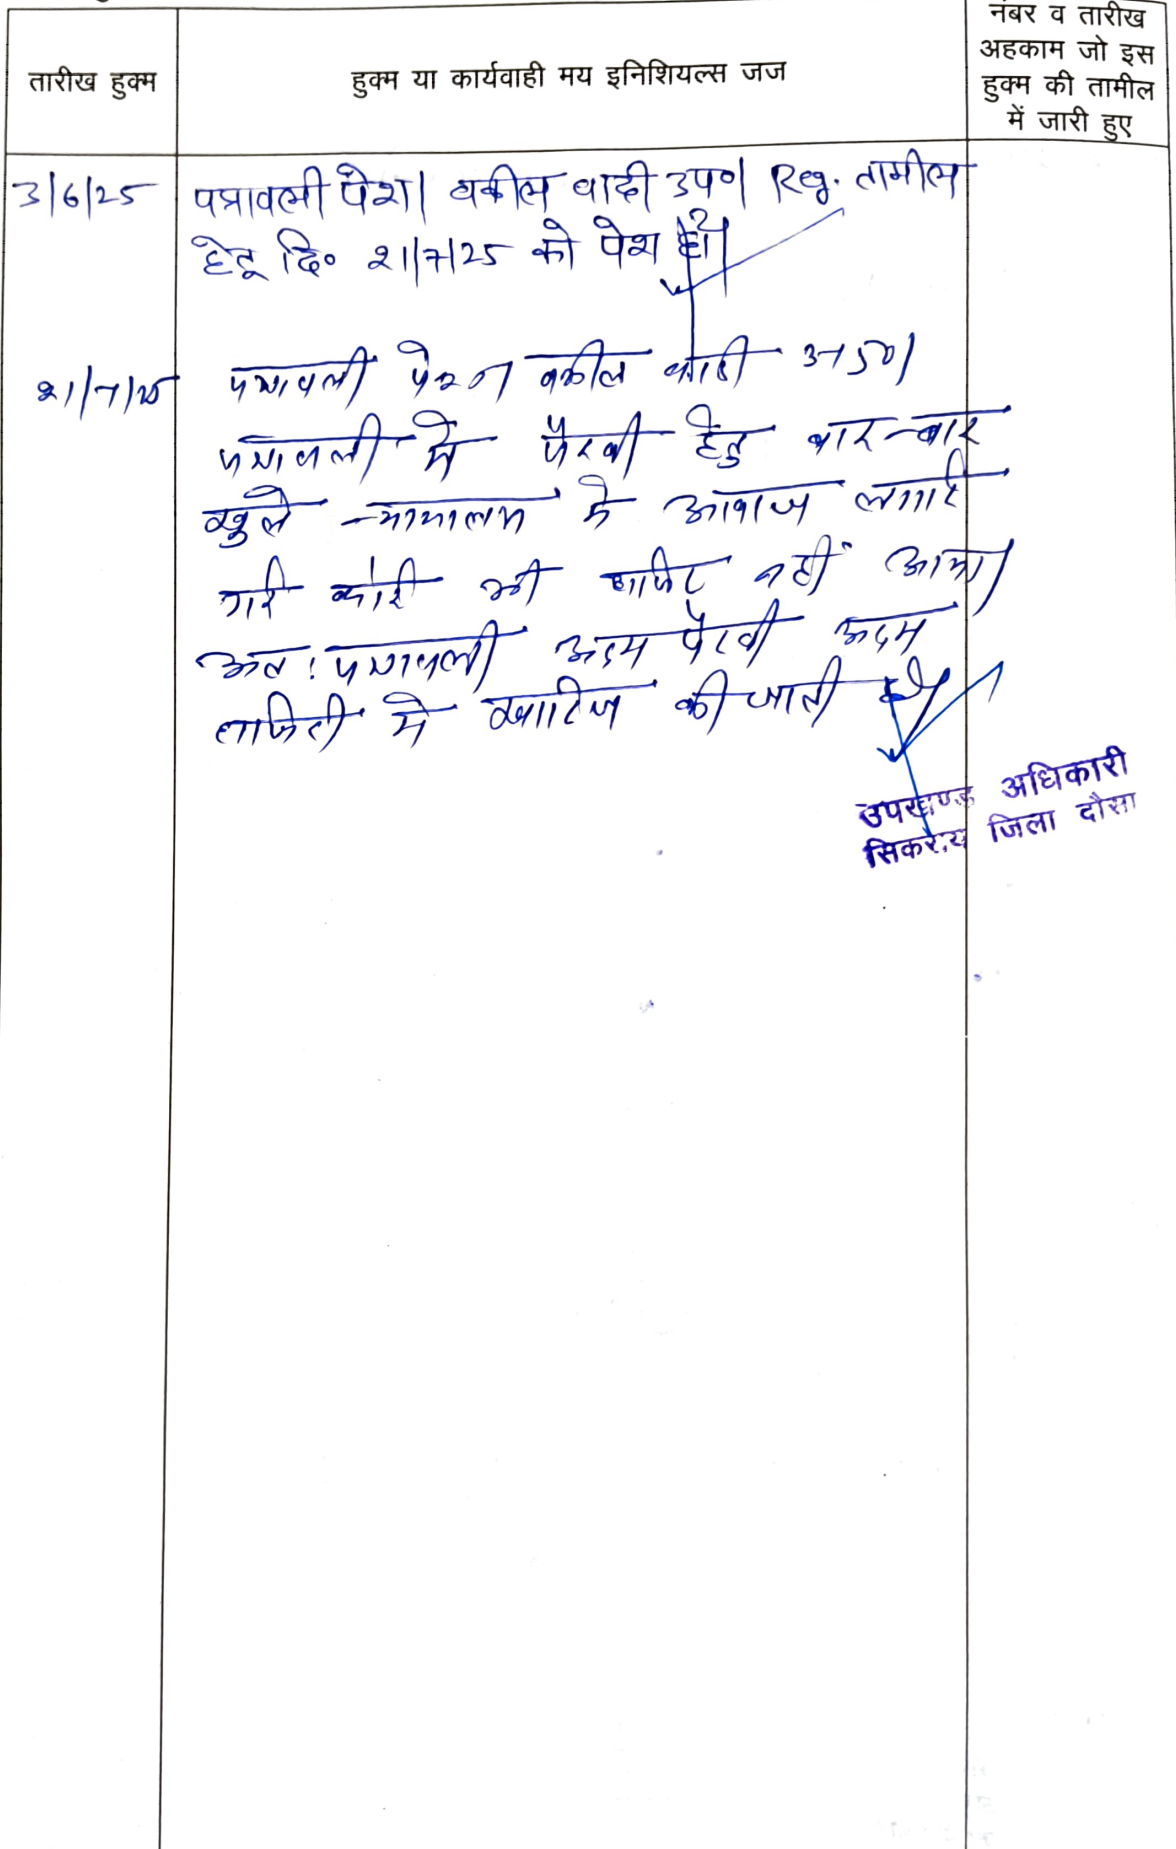 तारीख हुक्म
हुक्म या कार्यवाही मय इनिशियल्स जज
नंबर व तारीख
अहकाम जो इस
हुक्म की तामील
में जारी हुए
3/6/25
पत्रावली पेश। वकील वादी उप०। Reg. तामील
हेतू दि० 21/7/25 को पेश हो।
21/7/25
पत्रावली पेश। वकील वादी
पत्रावली में पैरवी हेतु बार-बार
खुले न्यायालय में आवाज लगाई
गई कोई भी हाजिर नहीं आया।
अत: पत्रावली अदम पैरवी अदम
हाजिरी में खारिज की जाती है।
उपखण्ड अधिकारी
सिकराय जिला दौसा